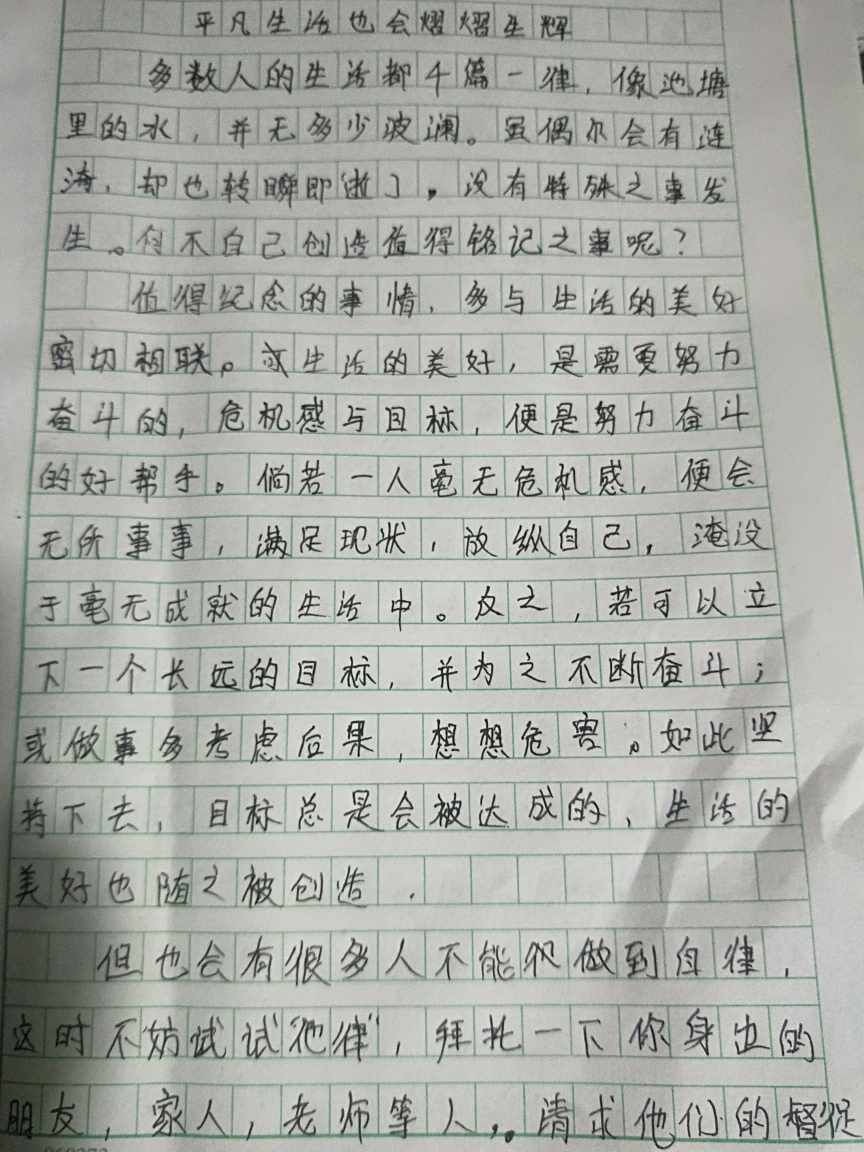 平凡生活也会熠熠生辉
多数人的生活都千篇一律，像池塘
里的水，并无多少波澜。虽偶尔会有涟
漪，却也转瞬即逝了，没有特殊之事发
生。何不自己创造值得铭记之事呢？
值得纪念的事情，多与生活的美好
密切相联。或生活的美好，是需要努力
奋斗的，危机感与目标，便是努力奋斗
的好帮手。倘若一人毫无危机感，便会
无所事事，满足现状，放纵自己，淹没
于毫无成就的生活中。反之，若可以立
下一个长远的目标，并为之不断奋斗；
或做事多考虑后果，想想危害。如此坚
持下去，目标总是会被达成的，生活的
美好也随之被创造．
但也会有很多人不能做到自律，
这时不妨试试“他律”，拜托一下你身边的
朋友，家人，老师等人，。请求他们的督促